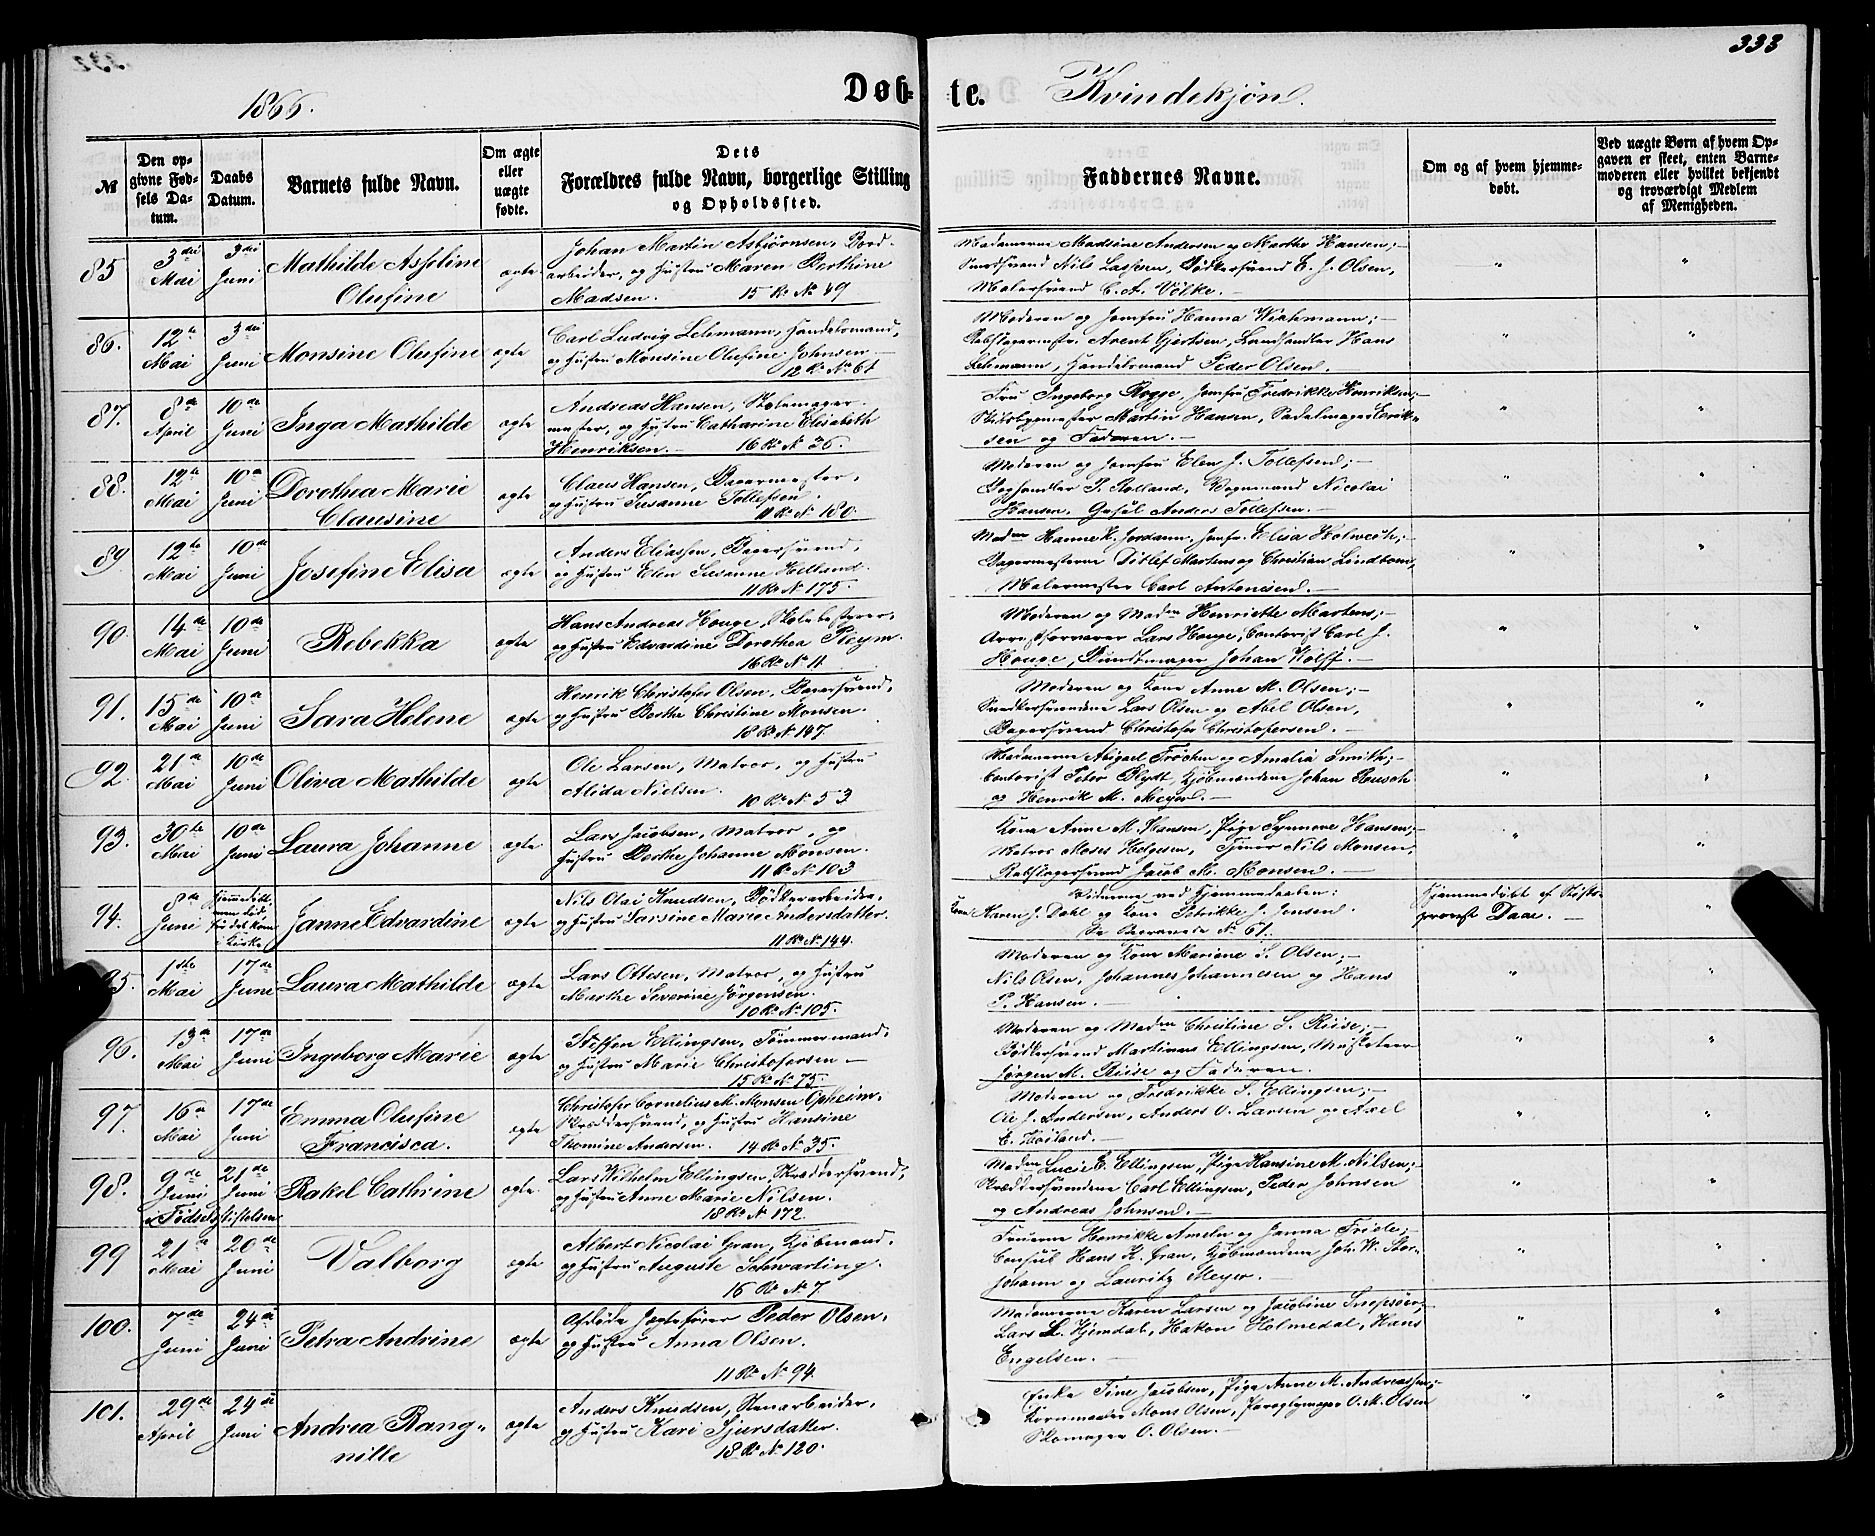 333
1866.
Døb-te. Kvindekjøn.
№
Den opgivne Fødsels Datum.
Daabs Datum.
Barnets fulde Navn.
Om ægte eller uægte fødte.
Dets Forældres fulde Navn, borgerlige Stilling og Opholdssted.
Faddernes Navne.
Om og af hvem hjemmedøbt.
Ved uægte Børn af hvem Opgaven er skeet, enten Barnemoderen eller hvilket bekjendt og troværdigt Medlem af Menigheden.
85 3die Mai 3die Juni Mathilde Asseline Olufine ægte
Johan Martin Asbjørnsen, Bordarbeider, og Hustru Maren Berthine
Madsen. 15 R. No 49
Madamerne Madsine Andersen og Marthe Hansen;
Smedsvend Nils Lassesen, Bødkersvend E. J. Olsen,
Malersvend C. A. Völke.
86. 12te Mai 3die Juni Monsine Olufine ægte
Carl Ludvig Lehmann, Handelsmand,
og Hustru Monsine Olufine Johnsen
12 R. No 61
Moderen og Jomfru Hanna Wichmann;
Rebslagermstr. Arent Gjertsen, Landhandler Hans
Lehmann, Handelsmand Peder Olsen.
87. 8de April 10de Juni Inga Mathilde ægte
Andreas Hansen, Stolemagermester, og Hustru Catharine Elisabeth
Henriksen. 16 R. N 36.
Fru Ingeborg Rogge, Jomfru Fredrikke Henriksen;
Skibsbygmester Martin Hansen, Sadelmager Eriksen og Faderen.
88. 12te Mai 10de Juni Dorothea Marie Clausine ægte
Claus Hansen, Bagermester,
og Hustru Susanne Tollefsen.
11 R. N. 180.
Moderen og Jomfru Elen J. Tollefsen;
Boghandler P. Rolland, Vognmand Nicolai
Hansen, Anders Tollefsen.
89 12te Mai 10de Juni Josefine Elisa ægte
Anders Eliassen, Bagersvend,
og Hustru Elen Susanne Helland.
11 R. N. 175.
Madm Hanne K. Jordann, Jomfr. Elisa Holwech;
Bagermesterne Ditlef Martens og Christian Lindtom,
Malermester Carl Antonisen.
90. 14de Mai 10de Juni Rebekka ægte
Hans Andreas Houge, Skolebestyrer,
og Hustru Edvardine Dorothea Pleym.
16 R. N. 11.
Moderen og Madm Henriette Martens;
Arrestforvarer Lars Houge, Contorist Carl J.
Houge, Bundtmager Johan Wolff.
91. 15de Mai 10de Juni Sara Helene ægte
Henrik Christofer Olsen, Bagersvend,
og Hustru Berthe Christine Monsen.
18 R. N. 147.
Moderen og Kone Anne M. Olsen;
Snedkersvendene Lars Olsen og Abel Olsen,
Bagersvend Christofer Christofersen.
92. 21de Mai 10de Juni Oliva Mathilde ægte
Ole Larsen, Matros, og Hustru
Alida Nielsen.
10 R. N. 53
Madamerne Abigael Trøchen og Amalia Smith;
Contorist Peter Blydt, Kjøbmændene Johan Rusch
og Henrik M. Meyer.
93. 30te Mai 10de Juni Laura Johanne ægte
Lars Jacobsen, Matros, og
Hustru Berthe Johanne Monsen.
11 R. N. 103
Kone Anne M. Hansen, Pige Synneve Hansen;
Matros Moses Helgesen, Tjener Nils Monsen,
Rebslagersvend Jacob M. Monsen.
94. 8de Juni Hjemmedøbt men død før det kom i Kirke Janne Edvardine ægte
Nils Olai Knudsen, Bødkerarbeider,
og Hustru Larsine Marie Andersdatter.
11 R. N. 144.
Vidnerne ved Hjemmedaaben:
Kone Karen J. Dahl og Kone Petrikke J. Jensen.
Se Begravede No 61.
Hjemmedøbt af Stiftsprovst Daae.
95. 1ste Mai 17de Juni Laura Mathilde ægte
Lars Ottesen, Matros, og Hustru
Marthe Severine Jörgensen.
10 R. No. 105.
Moderen og Kone Mariane S. Olsen;
Nils Olsen, Johannes Johannesen og Hans
P. Hansen.
96. 13de Mai 17de Juni Ingeborg Marie ægte
Steffen Ellingsen, Tömmermand,
og Hustru Marie Christofersen
15 R. N. 75.
Moderen og Madm Christine S. Riise;
Bødkersvend Martinus Ellingsen, Musketeer
Jørgen M. Riise og Faderen.
97. 16de Mai 17de Juni Emma Olufine Francisca. ægte
Christofer Cornelius M. Monsen Opheim,
Skræddersvend, og Hustru Hansine
Thomine Andersen. 14 R. N. 35.
Moderen og Fredrikke S. Ellingsen;
Ole J. Andersen, Anders O. Larsen og Axel
E. Høiland.
98. 9de Juni 21de Juni Rakel Cathrine ægte
i Fødselsstiftelsen
Lars Wilhelm Ellingsen, Skræddersvend,
og Hustru Anne Marie Nilsen.
18 R. N. 172.
Madm Lucie E. Ellingsen, Pige Hansine M. Nilsen;
Skræddersvendene Carl Ellingsen, Peder Johnsen
og Andreas Johnsen.
99 21de Mai 20de Juni Valborg ægte
Albert Nicolai Gran, Kjøbmand,
og Hustru Auguste Schwarting.
16 R. N. 7.
Fruerne Henrikke Ameln og Janna Friele;
Consul Hans K. Gran, Kjøbmændene Joh. W. Storjohann og Lauritz Meyer.
100. 7de Juni 24de Juni Petra Andrine ægte
Afdøde Jægtefører Peder Olsen,
og Hustru Anna Olsen.
11 R. N. 94.
Madamerne Karen Larsen og Jacobine Snepsöer;
Lars L. Hjemdal, Hakon Holmedal, Hans
Engelsen.
101. 29de April 24de Juni Andrea Rangnille ægte
Anders Knudsen, Stenarbeider,
og Hustru Kari Sjursdatter.
18 R. N. 120.
Enke Tine Jacobsen, Pige Anne M. Andreassen;
Kornmaaler Mons Olsen, Paraplymager O. M. Olsen
Skomager O. Olsen.